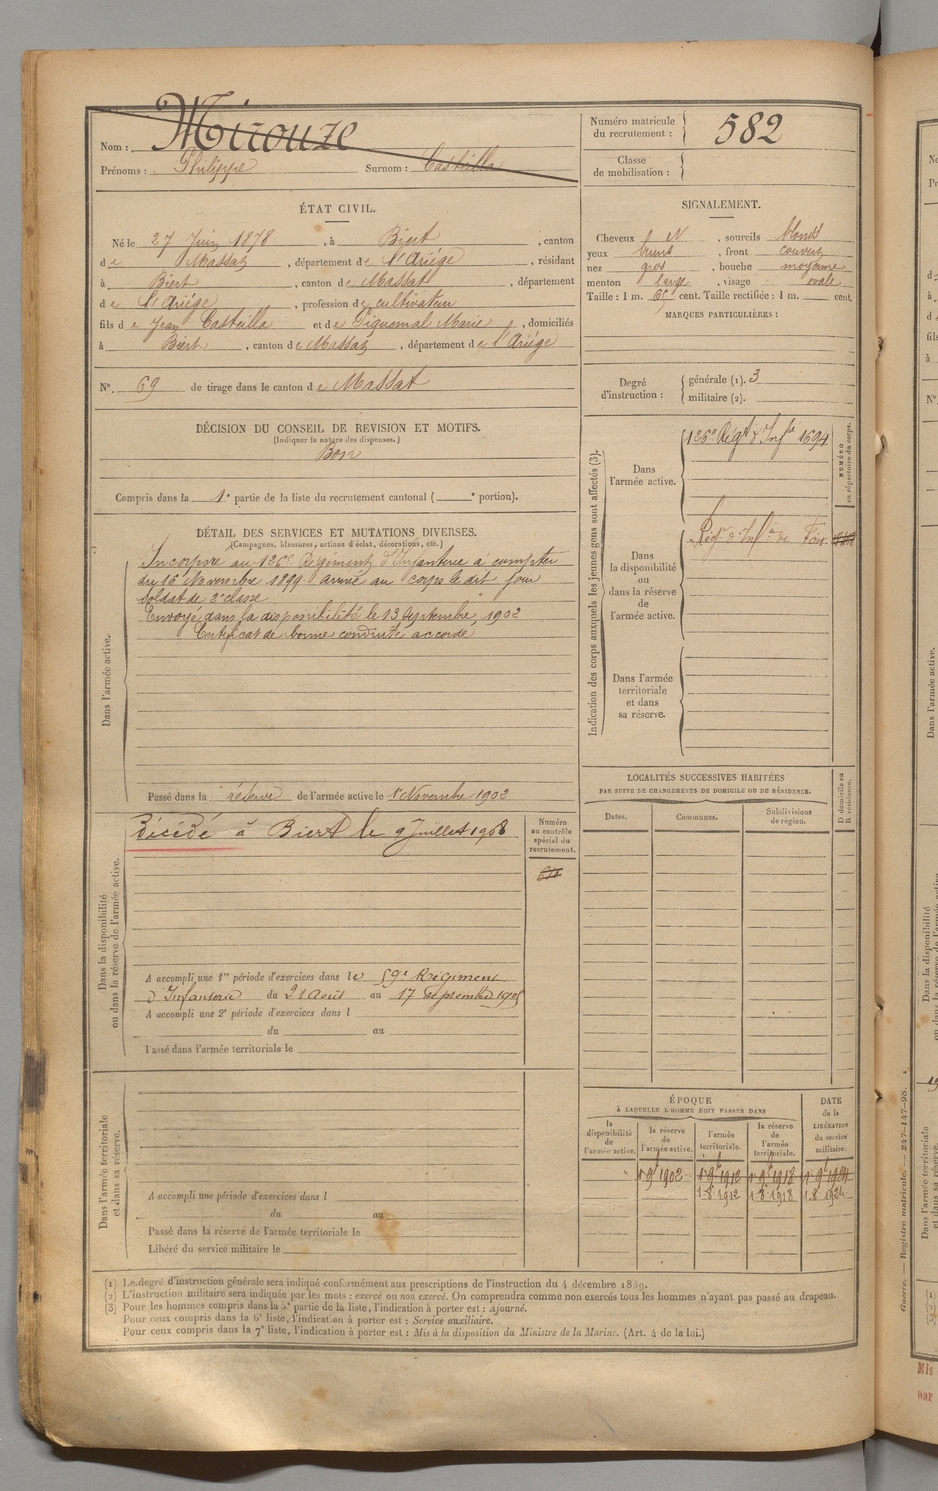 Nom : Mirouze
Prénoms : Philippe Surnom : Casteilla
Numéro matricule du recrutement : 582
Classe de mobilisation :
ÉTAT CIVIL.
Né le 27 Juin 1878, à Biert, canton
de Massat, département de l'Ariége, résidant
à Biert, canton de Massat, département
de l'Ariége, profession de cultivateur
fils de Jean Casteilla et de Piquemal Marie, domiciliés
à Biert, canton de Massat, département de l'Ariége
N°. 69 de tirage dans le canton de Massat
SIGNALEMENT.
Cheveux, sourcils blonds
yeux bruns, front couvert
nez gros, bouche moyenne
menton large, visage ovale
Taille : 1 m. 65 cent. Taille rectifiée : 1 m. cent.
MARQUES PARTICULIÈRES :
Degré d'instruction : générale (1). 3
militaire (2).
DÉCISION DU CONSEIL DE REVISION ET MOTIFS.
(Indiquer la nature des dispenses.)
Bon
Compris dans la 1e partie de la liste du recrutement cantonal ( e portion).
DÉTAIL DES SERVICES ET MUTATIONS DIVERSES.
(Campagnes, blessures, actions d'éclat, décorations, etc.)
Dans l'armée active.
Incorporé au 126e Régiment d'Infanterie à compter
du 16 Novembre 1899 arrivé au corps le dit jour
soldat de 2e classe
Envoyé dans la disponibilité le 13 Septembre 1902
Certificat de bonne conduite accordé
Passé dans la réserve de l'armée active le 1er Novembre 1902
Indication des corps auxquels les jeunes gens sont affectés (3).
NUMÉRO au répertoire du corps.
Dans l'armée active.
126e Régt d'Infie 1694
Dans la disponibilité ou dans la réserve de l'armée active.
Régt d'Infie de Foix
Dans l'armée territoriale et dans sa réserve.
Dans la disponibilité ou dans la réserve de l'armée active.
Décédé à Biert le 9 Juillet 1908
Numéro au contrôle spécial du recrutement.
A accompli une 1re période d'exercices dans le 59e Régiment
d'Infanterie du 21 Août au 17 Septembre 1905
A accompli une 2e période d'exercices dans l
du au
Passé dans l'armée territoriale le
LOCALITÉS SUCCESSIVES HABITÉES
PAR SUITE DE CHANGEMENTS DE DOMICILE OU DE RÉSIDENCE.
Dates. Communes. Subdivisions de région. D domicile ou R résidence.
Dans l'armée territoriale et dans sa réserve.
A accompli une période d'exercices dans l
du au
Passé dans la réserve de l'armée territoriale le
Libéré du service militaire le
ÉPOQUE
À LAQUELLE L'HOMME DOIT PASSER DANS
la disponibilité de l'armée active. la réserve de l'armée active. l'armée territoriale. la réserve de l'armée territoriale.
DATE de la LIBÉRATION du service militaire.
1er 9bre 1902 1er 9bre 1912 1er 9bre 1918 1er 9bre 1924
1-8 1912 1-8 1918 1-8 1924
(1) Le degré d'instruction générale sera indiqué conformément aux prescriptions de l'instruction du 4 décembre 1889.
(2) L'instruction militaire sera indiquée par les mots : exercé ou non exercé. On comprendra comme non exercés tous les hommes n'ayant pas passé au drapeau.
(3) Pour les hommes compris dans la 5e partie de la liste, l'indication à porter est : Ajourné.
Pour ceux compris dans la 6e liste, l'indication à porter est : Service auxiliaire.
Pour ceux compris dans la 7e liste, l'indication à porter est : Mis à la disposition du Ministre de la Marine. (Art. 4 de la loi.)
Guerre. — Registre matricule. — 247-147-98.
Mis
par